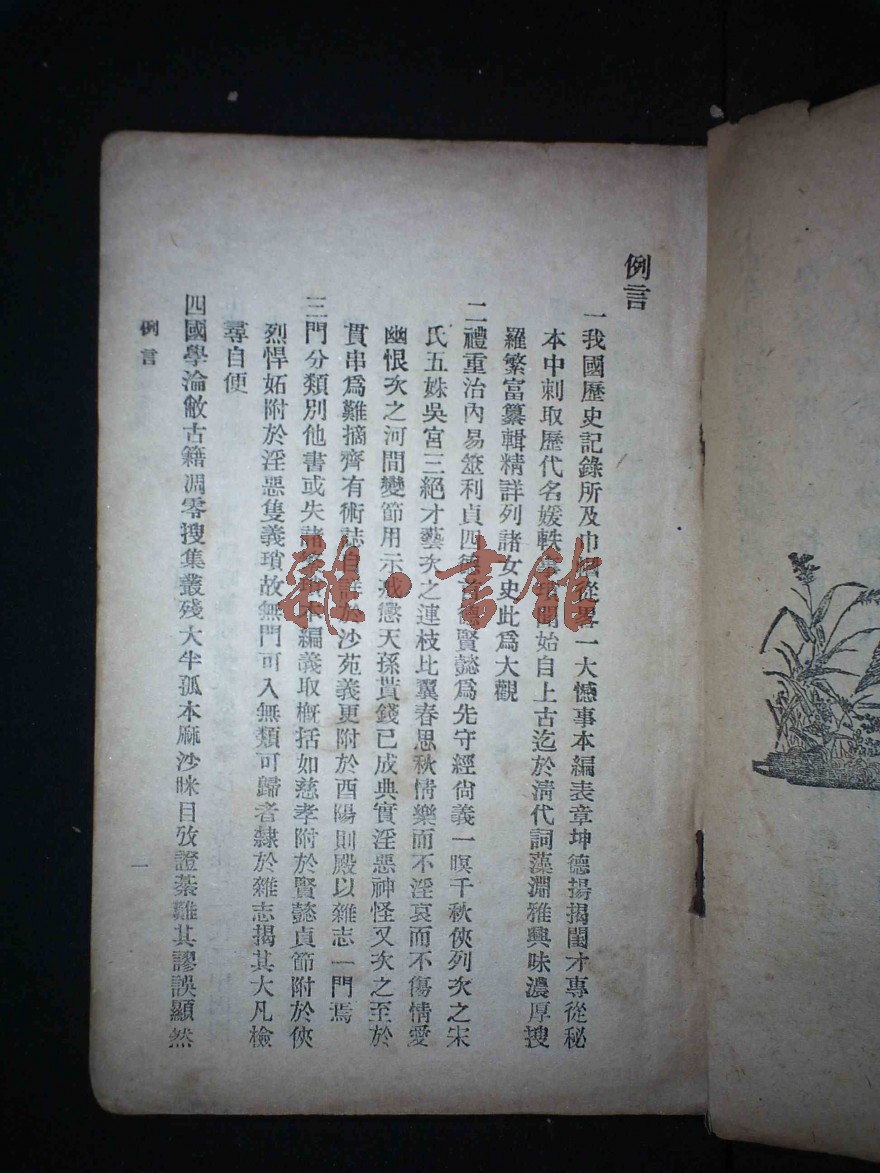 例言
一我國歷史記錄所及巾幗從畧一大憾事本編表章坤德揚搗閨才專從秘
本中刺取歷代名媛軼開始自上古迄於清代詞藻淵雅興味濃厚搜
羅繁富纂輯精詳列諸女史此爲大觀
二禮重治內易筮利貞四德賢懿爲先守經尙義一暝千秋俠列次之宋
氏五姝吳宮三絕才藝次之連枝比翼春思秋情樂而不淫哀而不傷情愛
幽恨次之河間變節用示戒懲天孫貰錢已成典實淫惡神怪又次之至於
貫串爲難摘齊有術誌自於沙苑義更附於酉陽則殿以雜志一門焉
三門分類別他書或失諸本編義取概括如慈孝附於賢懿貞節附於俠
烈悍妬附於淫惡隻義瑣故無門可入無類可歸者隸於雜志揭其大凡檢
尋自便
四國學淪敝古籍凋零搜集叢殘大半孤本麻沙眯目攷證綦難其謬誤顯然
例言
一
雜·書館